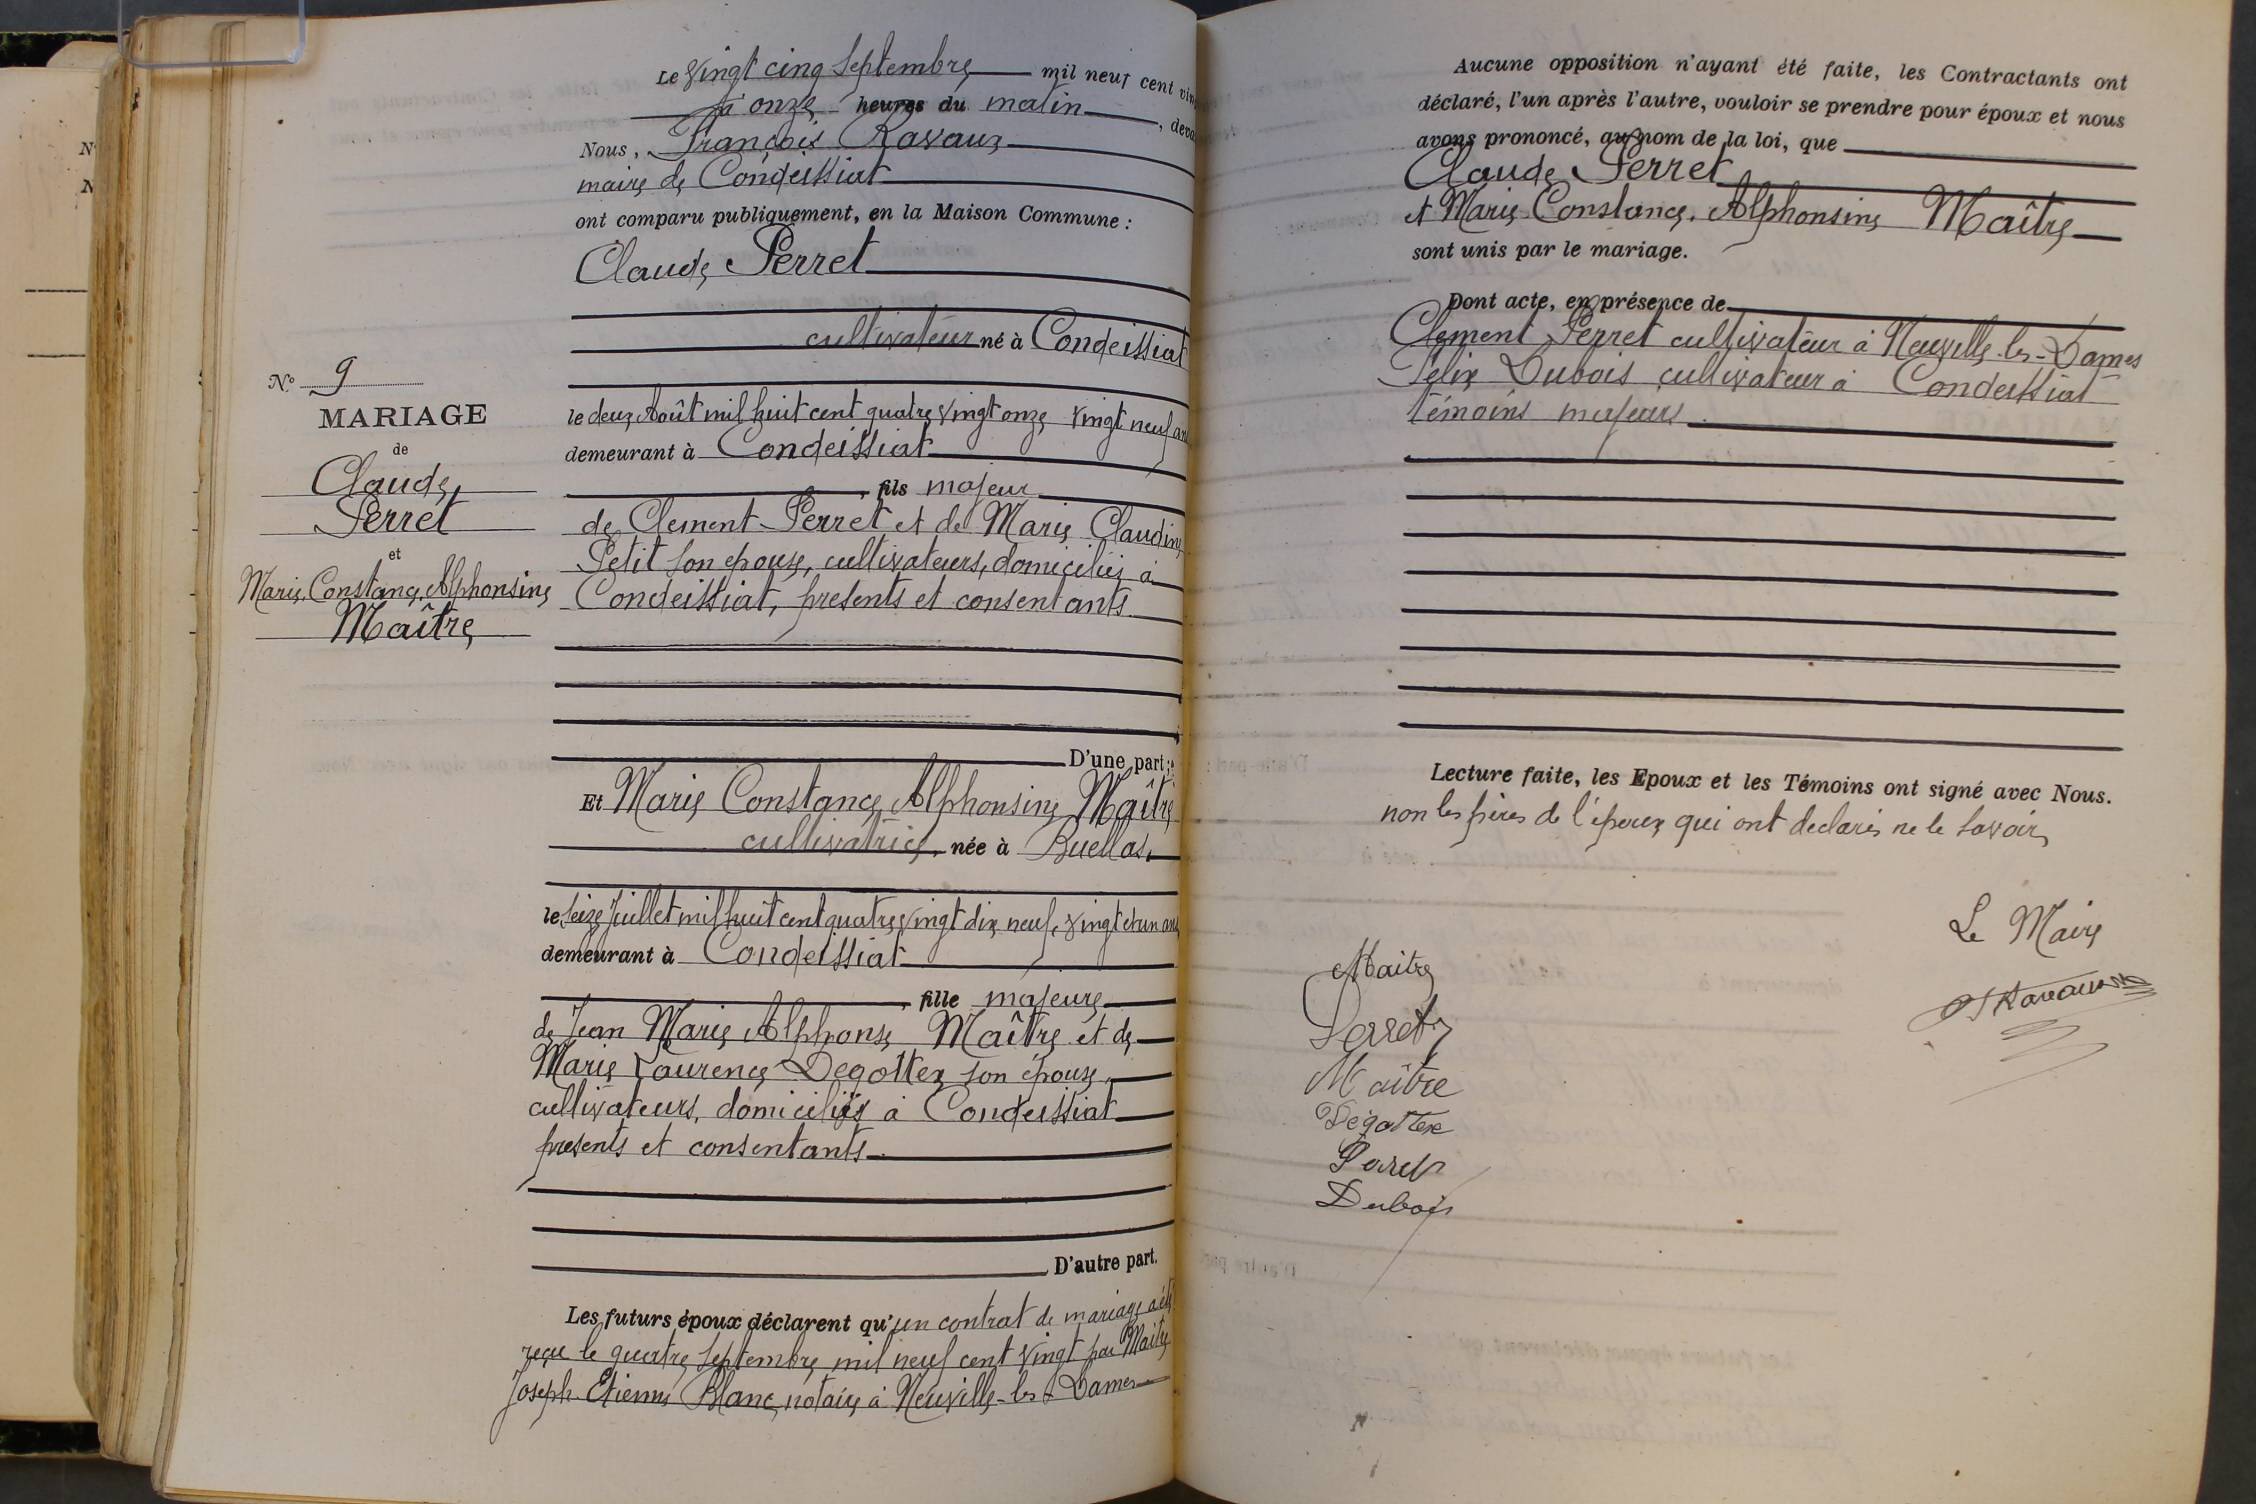 Le vingt cinq Septembre mil neuf cent
à onze heures du matin
Nous, François Ravaux
maire de Condeissiat
ont comparu publiquement, en la Maison Commune :
Claude Perret
cultivateur né à Condeissiat
le deux Août mil huit cent quatre vingt onze vingt neuf ans
demeurant à Condeissiat
, fils majeur
de Clement Perret et de Marie Claudine
Petit son epouse, cultivateurs, domiciliés à
Condeissiat, presents et consentants
N° 9
MARIAGE
de
Claude,
Perret
et
Marie, Constance, Alphonsine
Maître
D'une part ;
Et Marie Constance Alphonsine Maître
cultivatrice, née à Buellas,
le Seize Juillet mil huit cent quatre vingt dix neuf, vingt et un ans
demeurant à Condeissiat
, fille majeure
de Jean Marie Alphonse Maître et de
Marie Laurence Degottex son épouse,
cultivateurs, domiciliés à Condeissiat
presents et consentants
D'autre part.
Les futurs époux déclarent qu'un contrat de mariage a été
reçu le quatre Septembre mil neuf cent vingt par Maître
Joseph Etienne Blanc notaire à Neuville-les-Dames
Aucune opposition n'ayant été faite, les Contractants ont
déclaré, l'un après l'autre, vouloir se prendre pour époux et nous
avons prononcé, au nom de la loi, que
Claude Perret
et Marie Constance, Alphonsine Maître
sont unis par le mariage.
Dont acte, en présence de
Clement Perret cultivateur à Neuville-les-Dames
Félix Dubois cultivateur à Condeissiat
témoins majeurs
Lecture faite, les Epoux et les Témoins ont signé avec Nous.
non les pères de l'époux qui ont declarés ne le savoir
Le Maire
F Ravaux
Maitre
Perret
Maître
Dégottex
Perret
Dubois